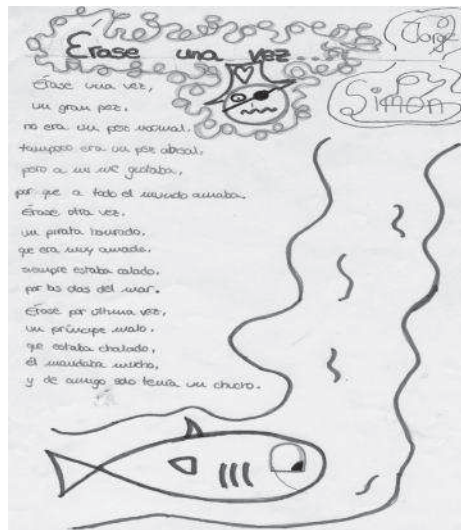 Érase una vez...
Jorge
y
Simón
Érase una vez,
un gran pez,
no era un pez normal,
tampoco era un pez abisal,
pero a mi me gustaba,
por que a todo el mundo amaba.
Érase otra vez,
un pirata honrado,
que era muy amado,
siempre estaba calado,
por las olas del mar.
Érase por última vez,
un príncipe malo,
que estaba chalado,
él mandaba mucho,
y de amigo solo tenía un chucho.